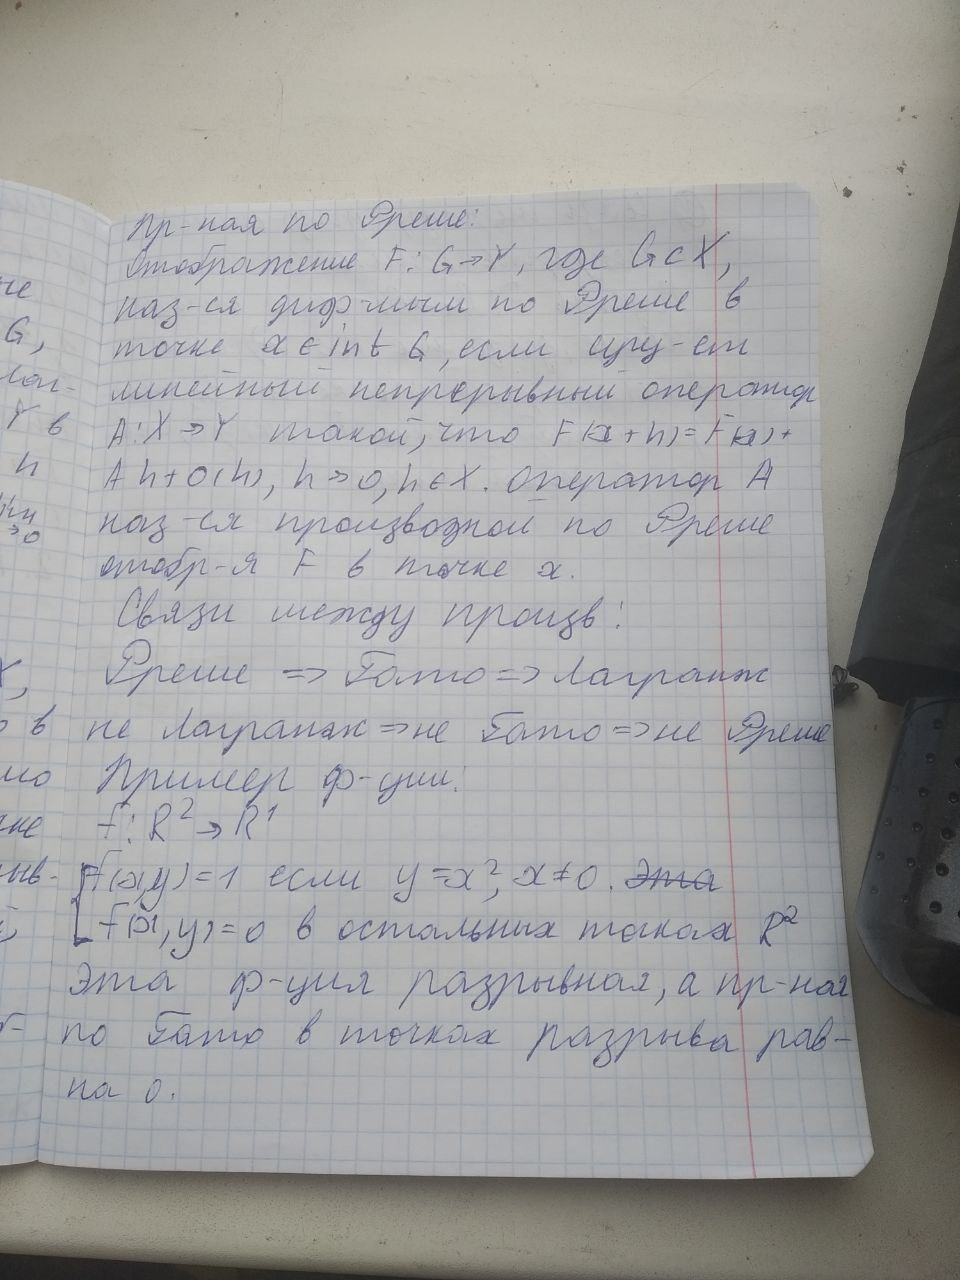 Пр-ная по Фреше:
Отображение F: G→Y, где G⊂X,
наз-ся диф-мым по Фреше в
точке x ∈ int G, если сущ-ет
линейный непрерывный оператор
A: X→Y такой, что F(x+h)=F(x)+
Ah+o(h), h→0, h∈X. Оператор A
наз-ся производной по Фреше
отобр-я F в точке x.
Связи между произв:
Фреше => Гато => Лагранж
не Лагранж => не Гато => не Фреше
Пример ф-ции:
f: R² → R¹
f(x,y)=1 если y=x², x≠0. Эта
f(x,y)=0 в остальных точках R²
Эта ф-ция разрывная, а пр-ная
по Гато в точках разрыва рав-
на 0.
че
G,
Лаг-
Y в
h
→0
X,
в
мо
чке
ыв-